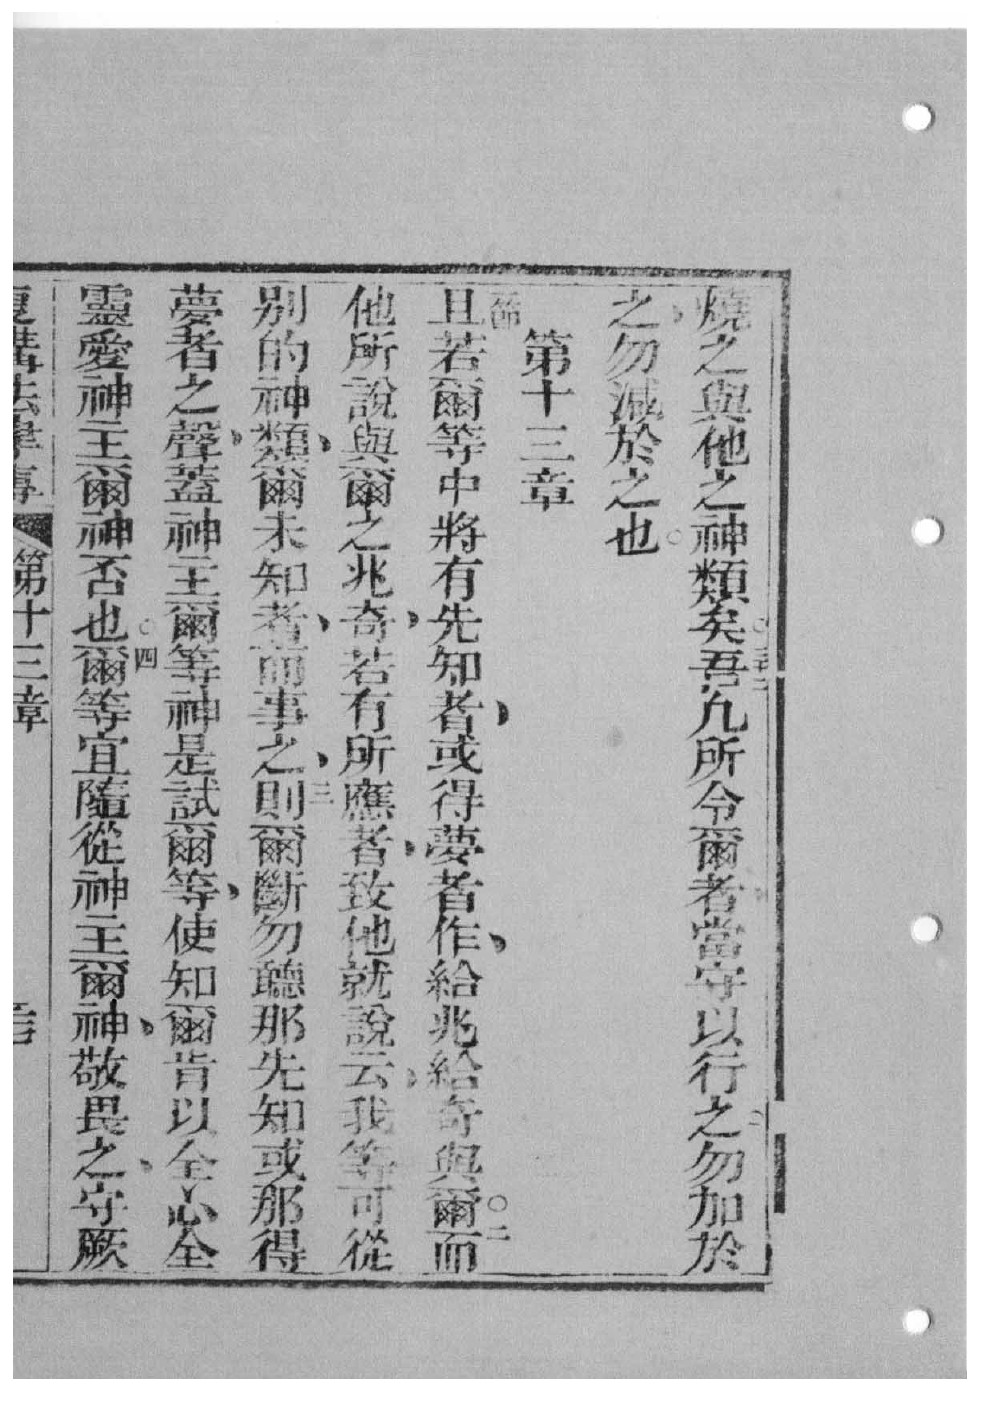 燒之與他之神類矣。三二吾凡所令爾者當守以行之、勿加於
之、勿減於之也。
第十三章
一節且若爾等中將有先知者、或得夢者作、給兆給奇與爾。二而
他所說與爾之兆奇、若有所應者、致他就說云、我等可從
別的神類、爾未知者、而事之、三則爾斷勿聽那先知或那得
夢者之聲、蓋神王爾等神是試爾等、使知爾肯以全心全
靈愛神王爾神否也。四爾等宜隨從神王爾神、敬畏之、守厥
復講法律書 第十三章